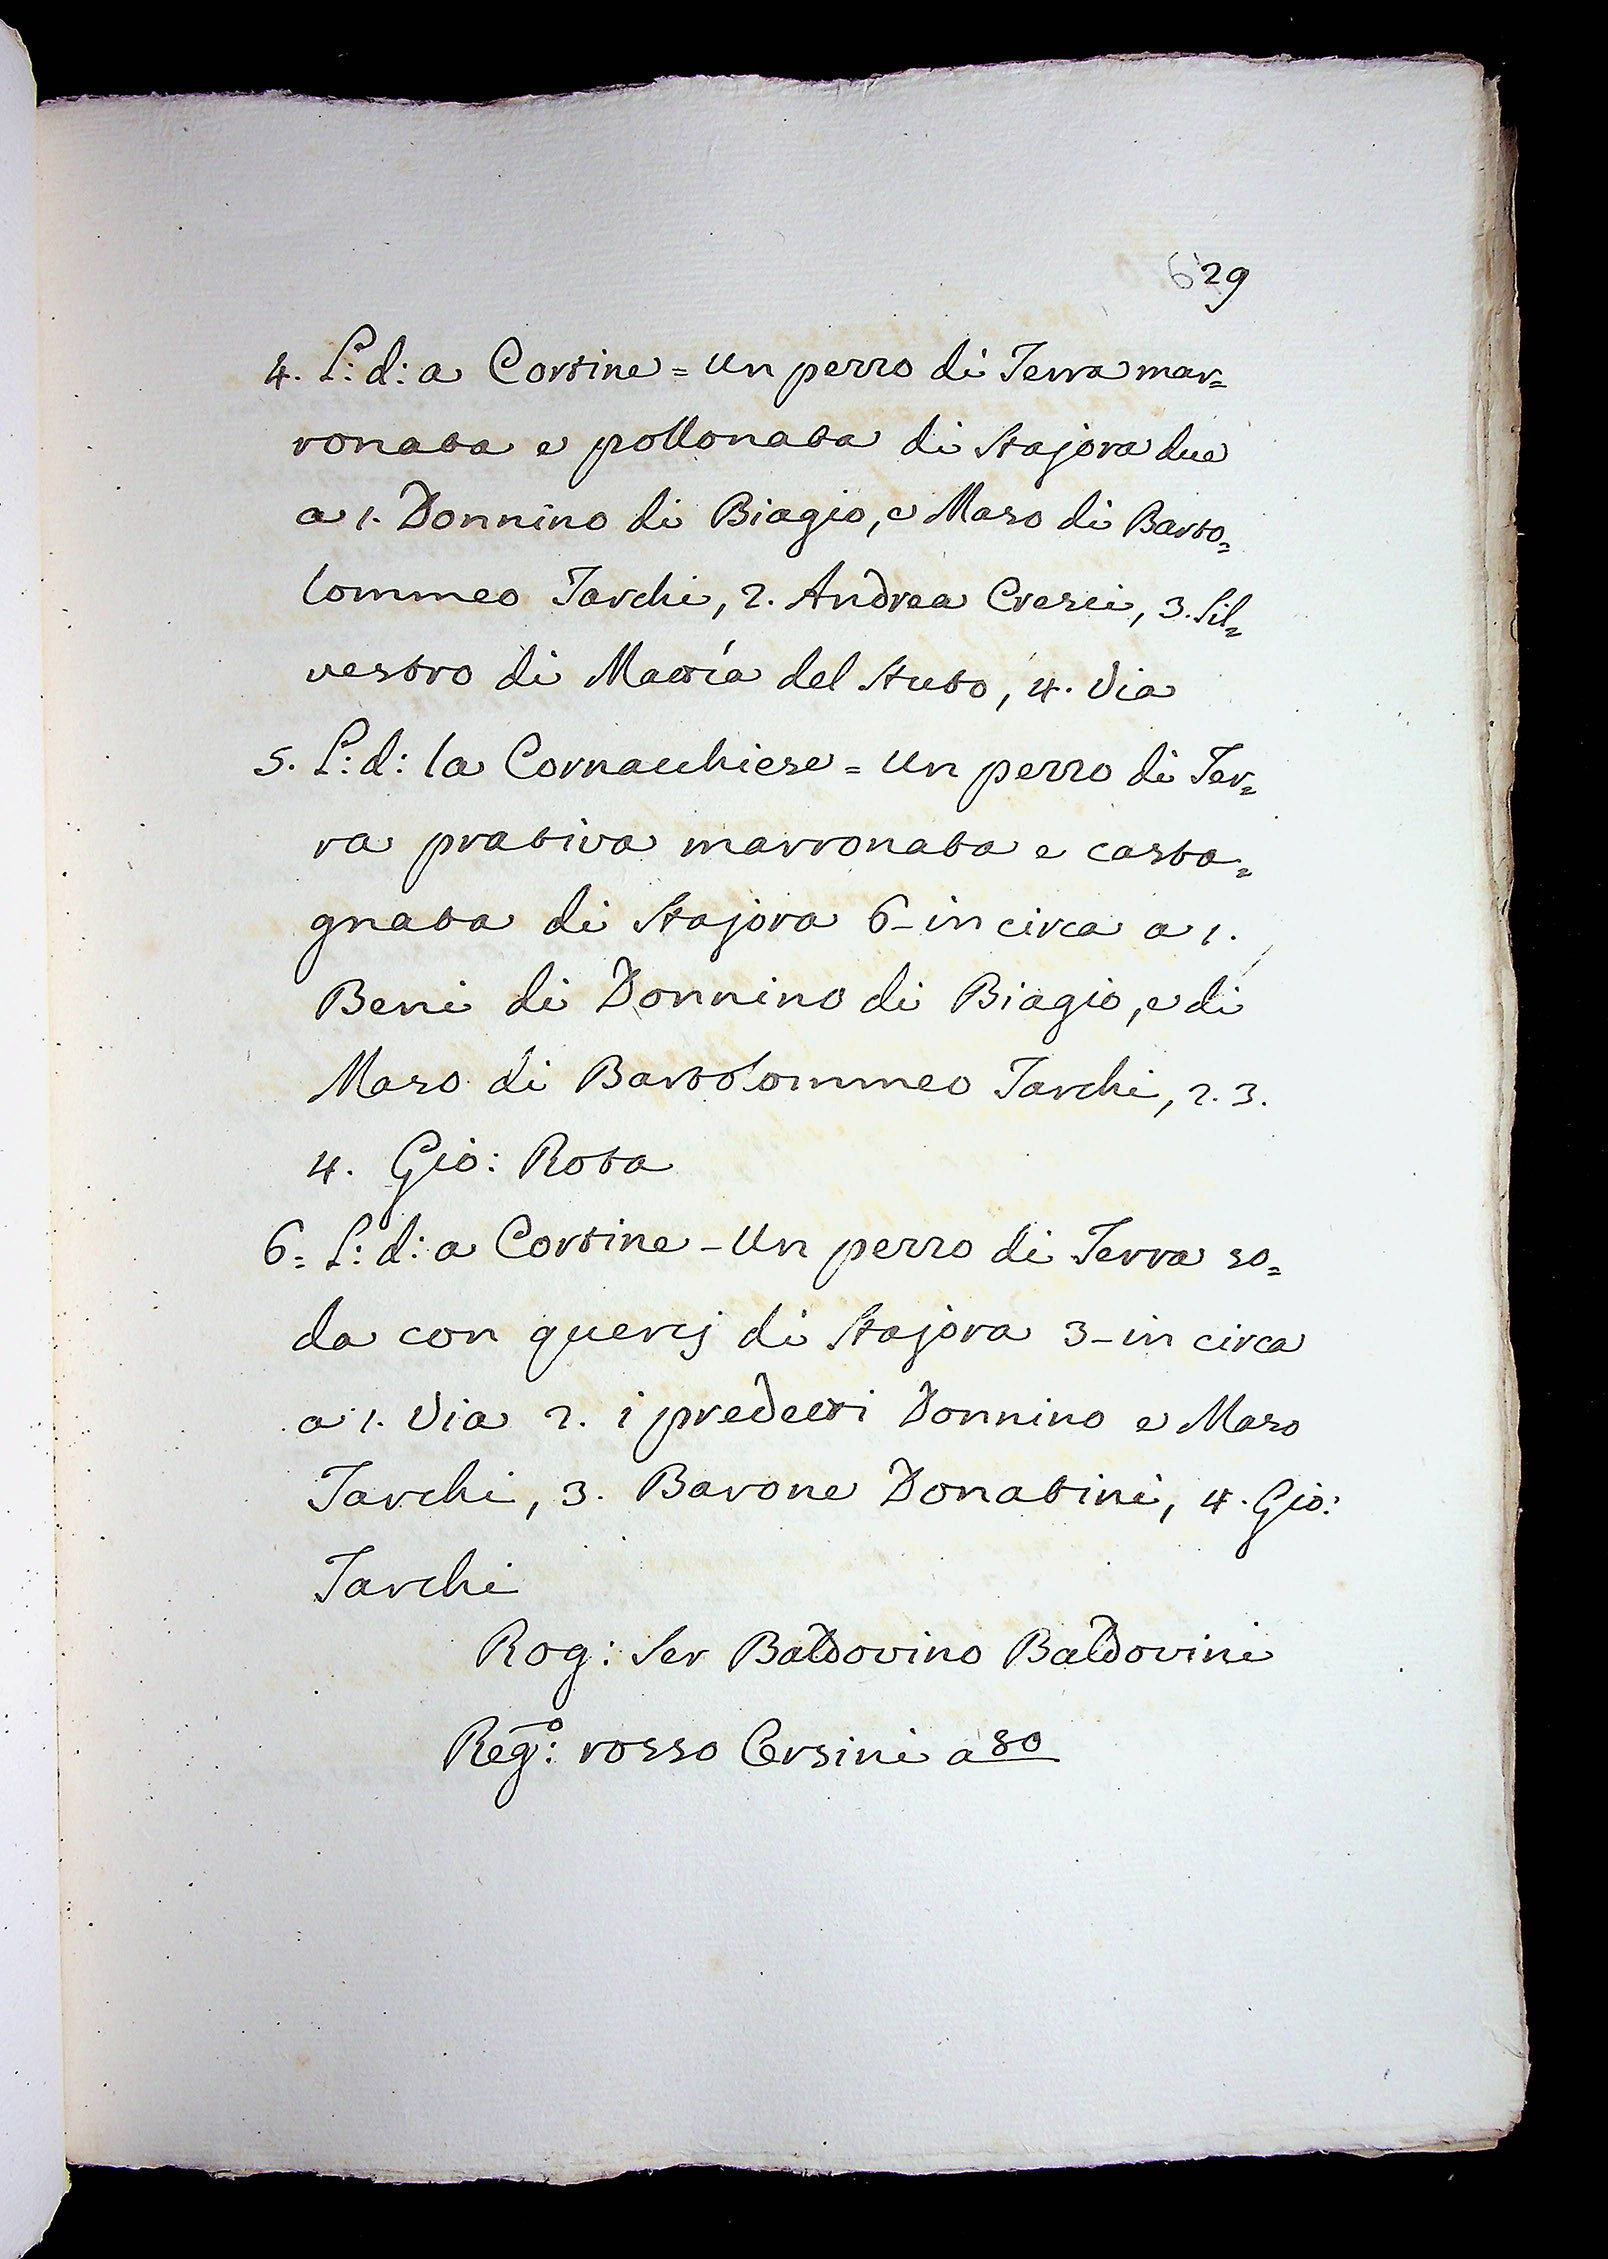 629
4. L: d: a Cortine = Un pezzo di Terra mar=
ronata e pollonata di Stajora due
a 1. Donnino di Biagio, e Maso di Barto=
lommeo Tarchi, 2. Andrea Cresci, 3. Sil=
vestro di Mattìa del Stuto, 4. Via
5. L: d: la Cornacchiese = Un pezzo di Ter=
ra prativa marronata e casta=
gnata di Stajora 6 - in circa a 1.
Beni di Donnino di Biagio, e di
Maso di Bartolommeo Tarchi, 2. 3.
4. Gio: Rota
6= L: d: a Cortine - Un pezzo di Terra so=
da con quercj di Stajora 3 - in circa
a 1. Via 2. i predetti Donnino e Maso
Tarchi, 3. Barone Donatini, 4. Gio:
Tarchi
Rog: Ser Baldovino Baldovini
Reg:º rosso Corsini a 80